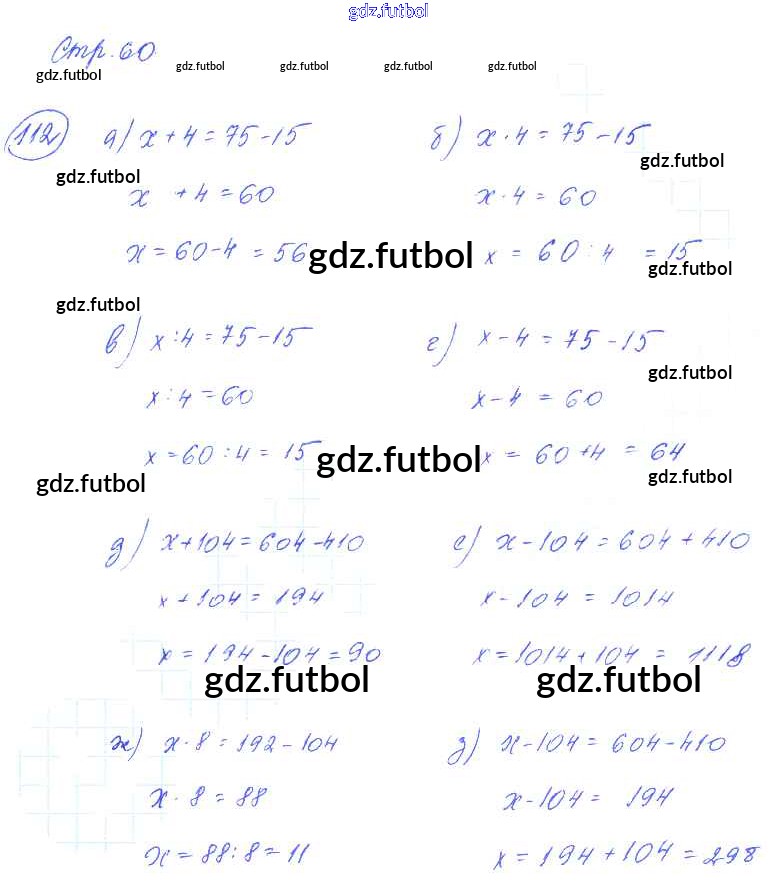 gdz.futbol
Стр. 60
gdz.futbol gdz.futbol gdz.futbol gdz.futbol gdz.futbol
112 а) x + 4 = 75 - 15 б) x · 4 = 75 - 15
gdz.futbol gdz.futbol
x + 4 = 60 x · 4 = 60
x = 60 - 4 = 56 x = 60 : 4 = 15
gdz.futbol gdz.futbol
gdz.futbol
в) x : 4 = 75 - 15 г) x - 4 = 75 - 15
gdz.futbol
x : 4 = 60 x - 4 = 60
x = 60 : 4 = 15 x = 60 + 4 = 64
gdz.futbol gdz.futbol gdz.futbol
д) x + 104 = 604 - 410 е) x - 104 = 604 + 410
x + 104 = 194 x - 104 = 1014
x = 194 - 104 = 90 x = 1014 + 104 = 1118
gdz.futbol gdz.futbol
ж) x · 8 = 192 - 104 з) x - 104 = 604 - 410
x · 8 = 88 x - 104 = 194
x = 88 : 8 = 11 x = 194 + 104 = 298